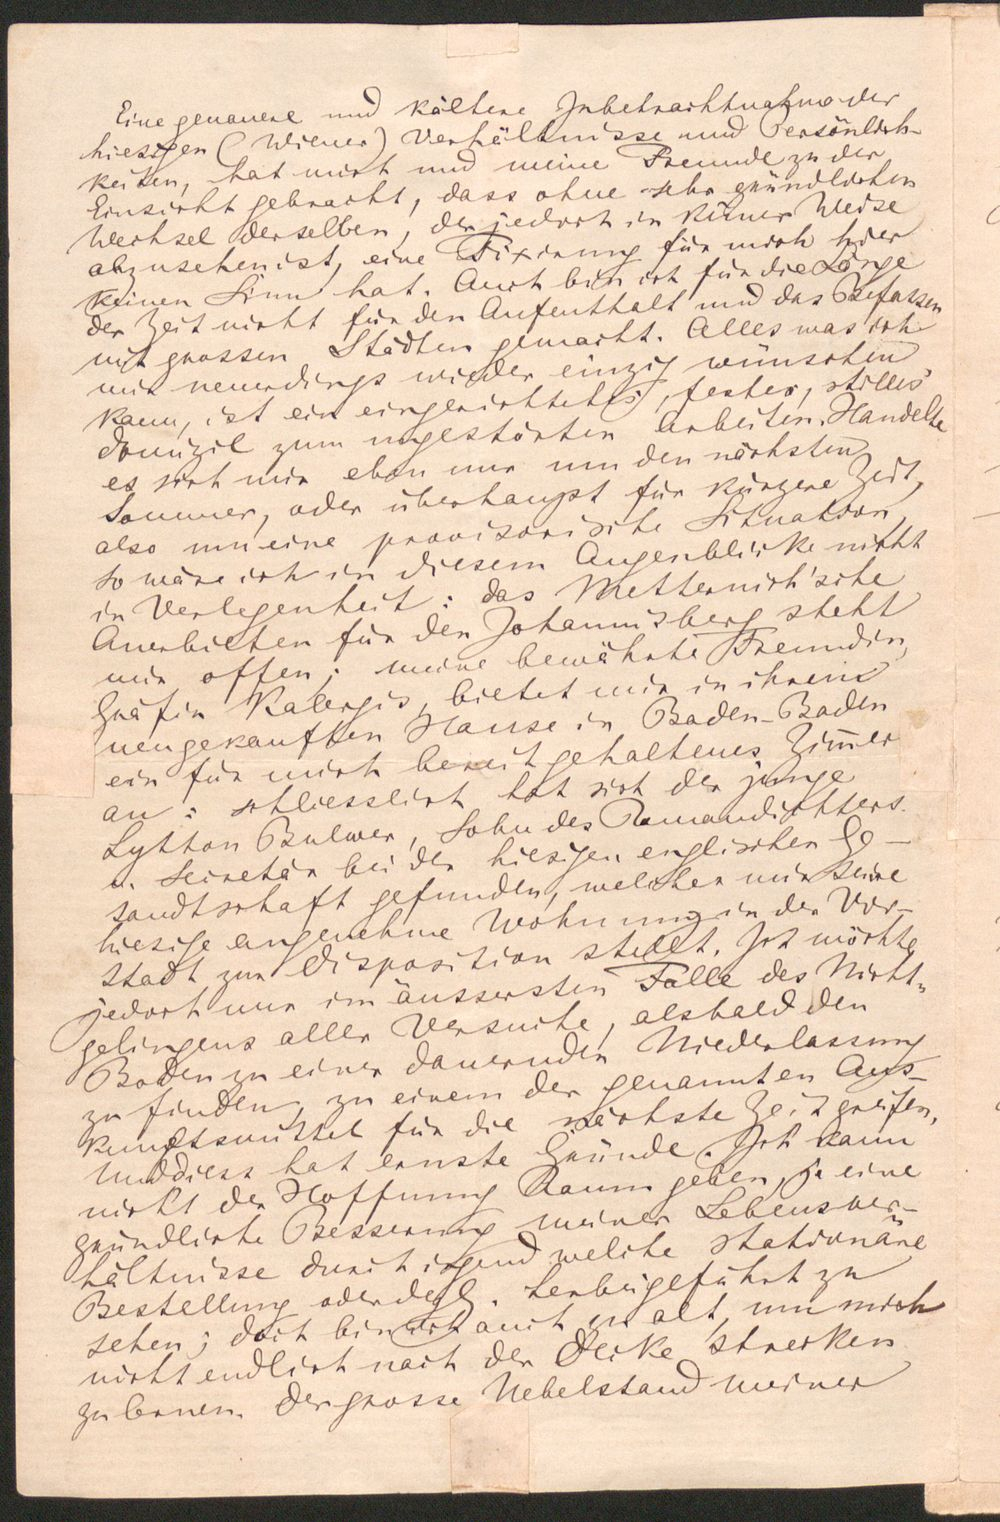 Eine genauere und kältere Inbetrachtnahme der
hiesigen (Wiener) Verhältnisse und Persönlich-
keiten, hat mich und meine Freunde zu der
Einsicht gebracht, dass ohne sehr gründlichen
Wechsel derselben, der jedoch in keiner Weise
abzusehen ist, eine Fixirung für mich hier
keinen Sinn hat. Auch bin ich für die Länge
der Zeit nicht für den Aufenthalt und das Befassen
mit grossen Städten gemacht. Alles was ich
mir neuerdings wieder einzig wünschen
kann, ist ein eingerichtetes, festes, stilles
Domizil zum ungestörten Arbeiten. Handelte
es sich mir eben nur um den nächsten
Sommer, oder überhaupt für kürzere Zeit,
also um eine provisorische Situation,
so wäre ich in diesem Augenblicke nicht
in Verlegenheit: das Metternich'sche
Anerbieten für den Johannisberg steht
mir offen; meine bewährte Freundin,
Gräfin Kalergis, bietet mir in ihrem
neugekauften Hause in Baden-Baden
ein für mich bereit gehaltenes Zim̄er
an: schliesslich hat sich der junge
Lytton Bulwer, Sohn des Romandichters
u. Secretär bei der hiesigen englischen Ge-
sandtschaft gefunden, welcher mir seine
hiesige angenehme Wohnung in der Vor-
stadt zur Disposition stellt. Ich möchte
jedoch nur im äussersten Falle des Nicht-
gelingens aller Versuche, alsbald den
Boden zu einer dauernden Niederlassung
zu finden, zu einem der genannten Aus-
kunftsmittel für die nächste Zeit greifen,
Und diess hat ernste Gründe. Ich kann
nicht der Hoffnung Raum geben, je eine
gründliche Besserung meiner Lebensver-
hältnisse durch irgend welche stationäre
Bestellung oder dgl. herbeigeführt zu
sehen; doch bin ich auch zu alt, um mich
nicht endlich nach der Decke strecken
zu lernen. Der grosse Uebelstand meiner